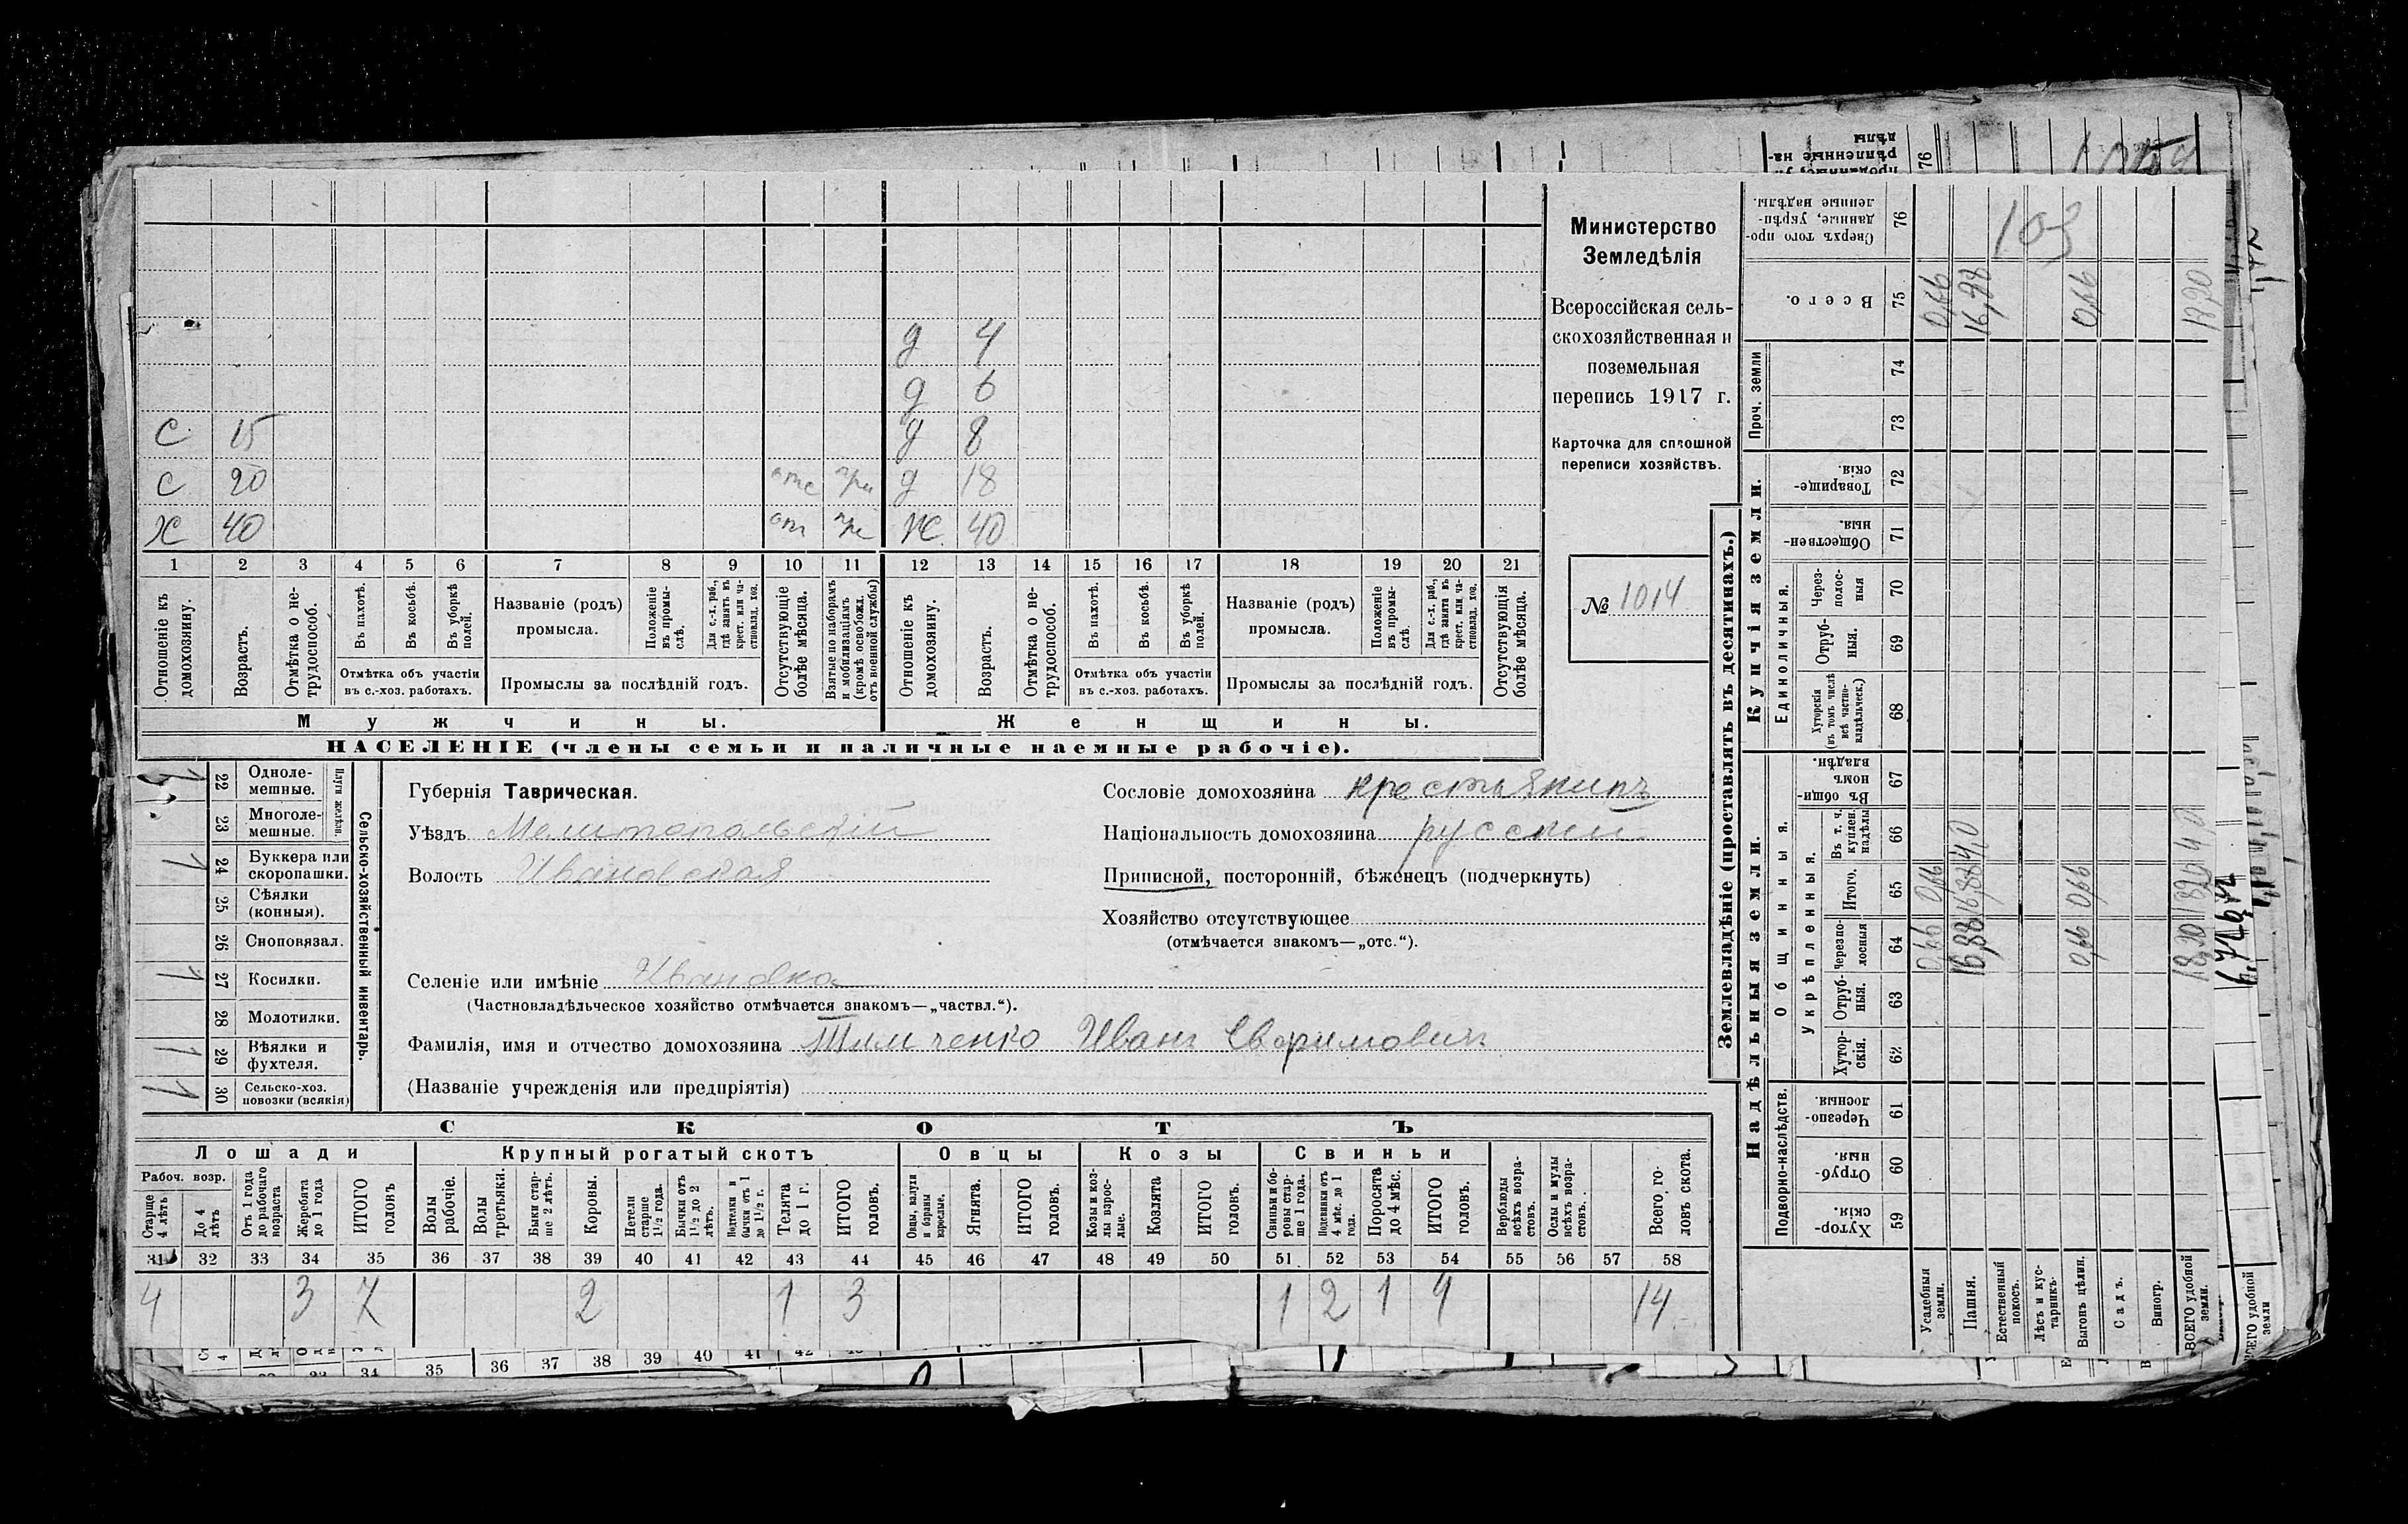 Министерство
Земледѣлія
Всероссійская сель-
скохозяйственная и
поземельная
перепись 1917 г.
Карточка для сплошной
переписи хозяйствъ.
№ 1014
д 4
д 6
с 15 д 8
с 20 отс при д 18
х 40 от ж 40
1 2 3 4 5 6 7 8 9 10 11 12 13 14 15 16 17 18 19 20 21
Отношеніе къ домохозяину.
Возрастъ.
Отмѣтка о не-трудоспособ.
Въ пахотѣ.
Въ косьбѣ.
Въ уборкѣ полей.
Отмѣтка объ участіи въ с.-хоз. работахъ.
Названіе (родъ) промысла.
Положеніе въ промы-слѣ.
Для с.-х. раб., гдѣ занятъ въ крест. или ча-стновлад. хоз.
Промыслы за послѣдній годъ.
Отсутствующіе болѣе мѣсяца.
Взятые по наборамъ и мобилизаціямъ (кромѣ освобожд. отъ военной службы)
Отношеніе къ домохозяину.
Возрастъ.
Отмѣтка о не-трудоспособ.
Въ пахотѣ.
Въ косьбѣ.
Въ уборкѣ полей.
Отмѣтка объ участіи въ с.-хоз. работахъ.
Названіе (родъ) промысла.
Положеніе въ промы-слѣ.
Для с.-х. раб., гдѣ занята въ крест. или ча-стновлад. хоз.
Промыслы за послѣдній годъ.
Отсутствующія болѣе мѣсяца.
Мужчины. Женщины.
НАСЕЛЕНІЕ (члены семьи и наличные наемные рабочіе).
Сельско-хозяйственный инвентарь.
Плуги желѣзн.
22 Одноле-мешные. 1
23 Многоле-мешные.
24 Буккера или скоропашки. 1
25 Сѣялки (конныя).
26 Сноповязал.
27 Косилки. 1
28 Молотилки.
29 Вѣялки и фухтеля. 1
30 Сельско-хоз. повозки (всякія) 1
Губернія Таврическая.
Уѣздъ Мелитопольскій
Волость Ивановская
Сословіе домохозяина крестьянинъ
Національность домохозяина русскій
Приписной, посторонній, бѣженецъ (подчеркнуть)
Хозяйство отсутствующее
(отмѣчается знакомъ—„отс.“).
Селеніе или имѣніе Ивановка
(Частновладѣльческое хозяйство отмѣчается знакомъ—„частвл.“).
Фамилія, имя и отчество домохозяина Тимченко Иванъ
(Названіе учрежденія или предпріятія)
СКОТЪ
Лошади Крупный рогатый скотъ Овцы Козы Свиньи
Рабоч. возр.
Старше 4 лѣтъ
До 4 лѣтъ
Отъ 1 года до рабочаго возраста
Жеребята до 1 года
ИТОГО головъ
Волы рабочіе.
Волы третьяки.
Быки стар-ше 2 лѣтъ.
Коровы.
Нетели старше 1½ года.
Бычки отъ 1½ до 2 лѣтъ.
Подтелки и бычки отъ 1 до 1½ г.
Телята до 1 г.
ИТОГО головъ.
Овцы, валухи и бараны взрослые.
Ягнята.
ИТОГО головъ.
Козы и коз-лы взрос-лые.
Козлята
ИТОГО головъ.
Свиньи и бо-ровы стар-ше 1 года.
Подсвинки отъ 4 мѣс. до 1 года.
Поросята до 4 мѣс.
ИТОГО головъ.
Верблюды всѣхъ возра-стовъ.
Ослы и мулы всѣхъ возра-стовъ.
Всего го-ловъ скота.
31 32 33 34 35 36 37 38 39 40 41 42 43 44 45 46 47 48 49 50 51 52 53 54 55 56 57 58
4 3 7 2 1 3 1 2 1 4 14
Землевладѣніе (проставлять въ десятинахъ.)
Надѣльныя земли. Купчія земли. Проч. земли
Подворно-наслѣдств.
Общинныя.
Укрѣпленныя.
Единоличныя.
59 Хутор-скія.
60 Отруб-ныя.
61 Черезпо-лосныя.
62 Хутор-скія.
63 Отруб-ныя.
64 Черезпо-лосныя
65 Итого.
66 Въ т. ч. куплен. надѣлы
67 Въ общи-номъ владѣн.
68 Хуторскія (въ томъ числѣ всѣ частно-владѣльческ.)
69 Отруб-ныя.
70 Через-полос-ныя
71 Обществен-ныя.
72 Товарище-скія.
73
74
75 Всего.
76 Сверхъ того про-данные, укрѣп-ленные надѣлы.
Усадебныя земли. 0,66 0,66 0,66
Пашня. 16,88 16,88 4,0 16,88
Естественный покосъ.
Лѣсъ и кус-тарникъ.
Выгонъ цѣлин. 0,66 0,66 0,66
Садъ.
Виногр.
ВСЕГО удобной земли. 18,20 18,20 4,0 18,20
103
76
ВСЕГО удобной земли
34 35 36 37 38 39 40 41